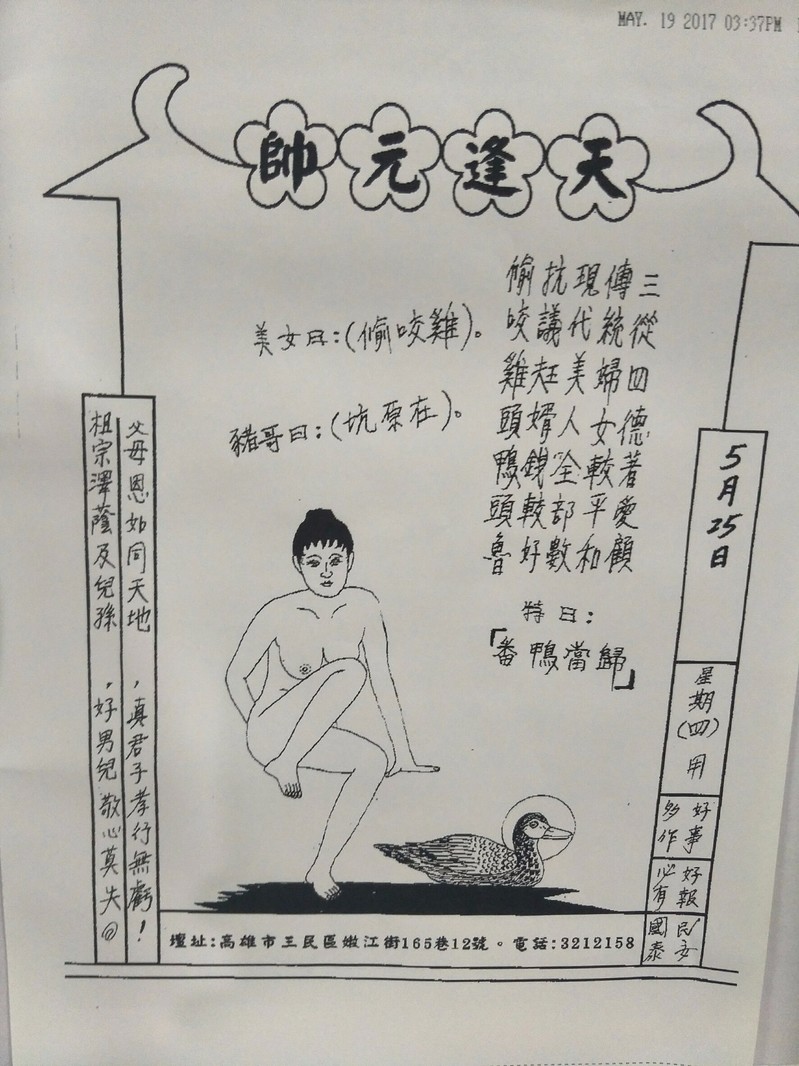 MAY. 19 2017 03:37PM
天逢元帥
5月25日
星期(四)用
好事
多作
好報
必有
民安
國泰
三從四德著愛顧
傳統婦女較平和
現代美人全部數
抗議赶婿銳較好
偷咬雞頭鴨頭魯
特曰:
「番鴨當歸」
美女曰:(偷咬雞)。
豬哥曰:(坑原在)。
父母恩如同天地,真君子孝行無虧!
祖宗澤蔭及兒孫,好男兒敬心莫失
壇址:高雄市三民區嫩江街165巷12號。電話:3212158